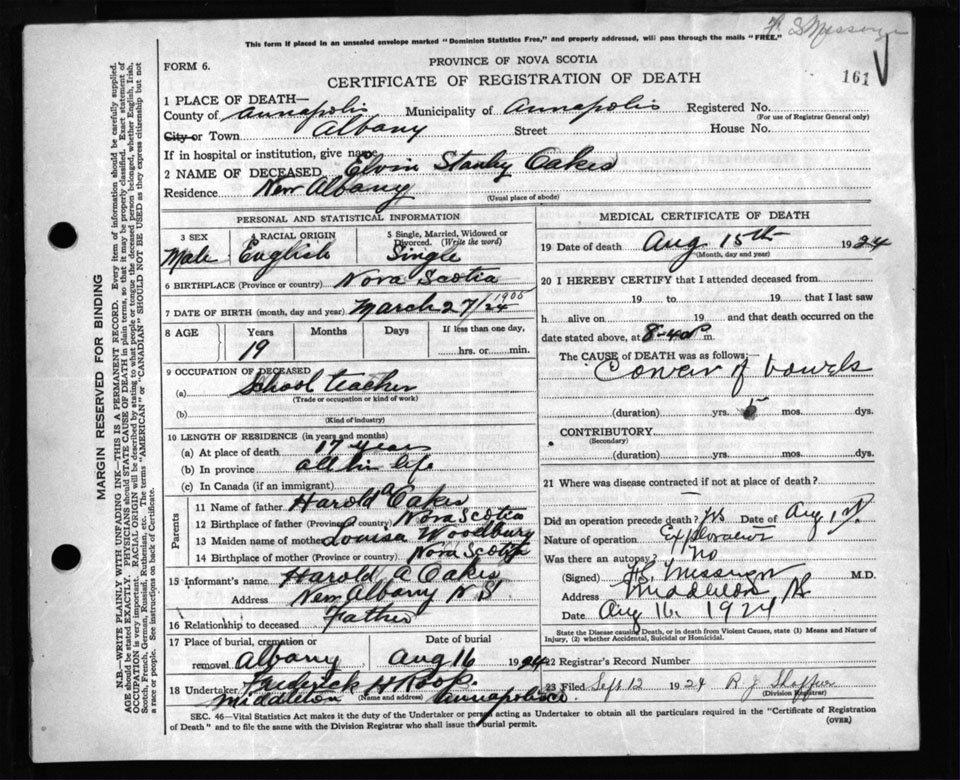 This form if placed in an unsealed envelope marked "Dominion Statistics Free," and properly addressed, will pass through the mails "FREE."
FORM 6.
PROVINCE OF NOVA SCOTIA
CERTIFICATE OF REGISTRATION OF DEATH
161
1 PLACE OF DEATH—
County of Annapolis Municipality of Annapolis Registered No.
(For use of Registrar General only)
City or Town Albany Street House No.
If in hospital or institution, give name
2 NAME OF DECEASED Elvin Stanley Oakes
Residence New Albany
(Usual place of abode)
PERSONAL AND STATISTICAL INFORMATION
3 SEX 4 RACIAL ORIGIN 5 Single, Married, Widowed or Divorced. (Write the word)
Male English Single
6 BIRTHPLACE (Province or country) Nova Scotia
7 DATE OF BIRTH (month, day and year) March 27/24 1905
8 AGE Years Months Days If less than one day,
19 hrs. or min.
9 OCCUPATION OF DECEASED
(a) School teacher
(Trade or occupation or kind of work)
(b)
(Kind of industry)
10 LENGTH OF RESIDENCE (in years and months)
(a) At place of death 17 years
(b) In province all his life
(c) In Canada (if an immigrant)
Parents
11 Name of father Harold A Oakes
12 Birthplace of father (Province or country) Nova Scotia
13 Maiden name of mother Louisa Woodbury
14 Birthplace of mother (Province or Country) Nova Scotia
15 Informant's name Harold A Oakes
Address New Albany N S
16 Relationship to deceased Father
17 Place of burial, cremation or removal Albany Date of burial Aug 16 1924
18 Undertaker Frederick H Roop
Middleton (Name and address) Annapolis Co
MEDICAL CERTIFICATE OF DEATH
19 Date of death Aug 15th 1924
(Month, day and year)
20 I HEREBY CERTIFY that I attended deceased from
19 to 19 that I last saw
h alive on 19 and that death occurred on
date stated above, at 8-40 P m.
The CAUSE of DEATH was as follows:—
of bowels
(duration) yrs. 5 mos. dys.
CONTRIBUTORY
(Secondary)
(duration) yrs. mos. dys.
21 Where was disease contracted if not at place of death?
Did an operation precede death? Yes Date of Aug 1
Nature of operation
Was there an autopsy? No
(Signed) M.D.
Address Middleton NS
Date Aug 16. 1924
State the Disease causing Death, or in death from Violent Causes, state (1) Means and Nature of Injury, (2) whether Accidental, Suicidal or Homicidal.
22 Registrar's Record Number
23 Filed Sept 12 1924 R J Shaffner
(Division Registrar)
SEC. 46—Vital Statistics Act makes it the duty of the Undertaker or person acting as Undertaker to obtain all the particulars required in the "Certificate of Registration
of Death" and to file the same with the Division Registrar who shall issue the burial permit.
(OVER)
MARGIN RESERVED FOR BINDING
N.B.—WRITE PLAINLY WITH UNFADING INK—THIS IS A PERMANENT RECORD. Every item of information should be carefully supplied.
AGE should be stated EXACTLY. PHYSICIANS should STATE CAUSE OF DEATH in plain terms, so that it may be properly classified. Exact statement of
OCCUPATION is very important. RACIAL ORIGIN will be described by stating to what people or tongue the deceased person belonged, whether English, Irish,
Scotch, French, German, Russian, Ruthenian, etc. The terms "AMERICAN" or "CANADIAN" SHOULD NOT BE USED as they express citizenship but not
a race or people. See instructions on back of Certificate.